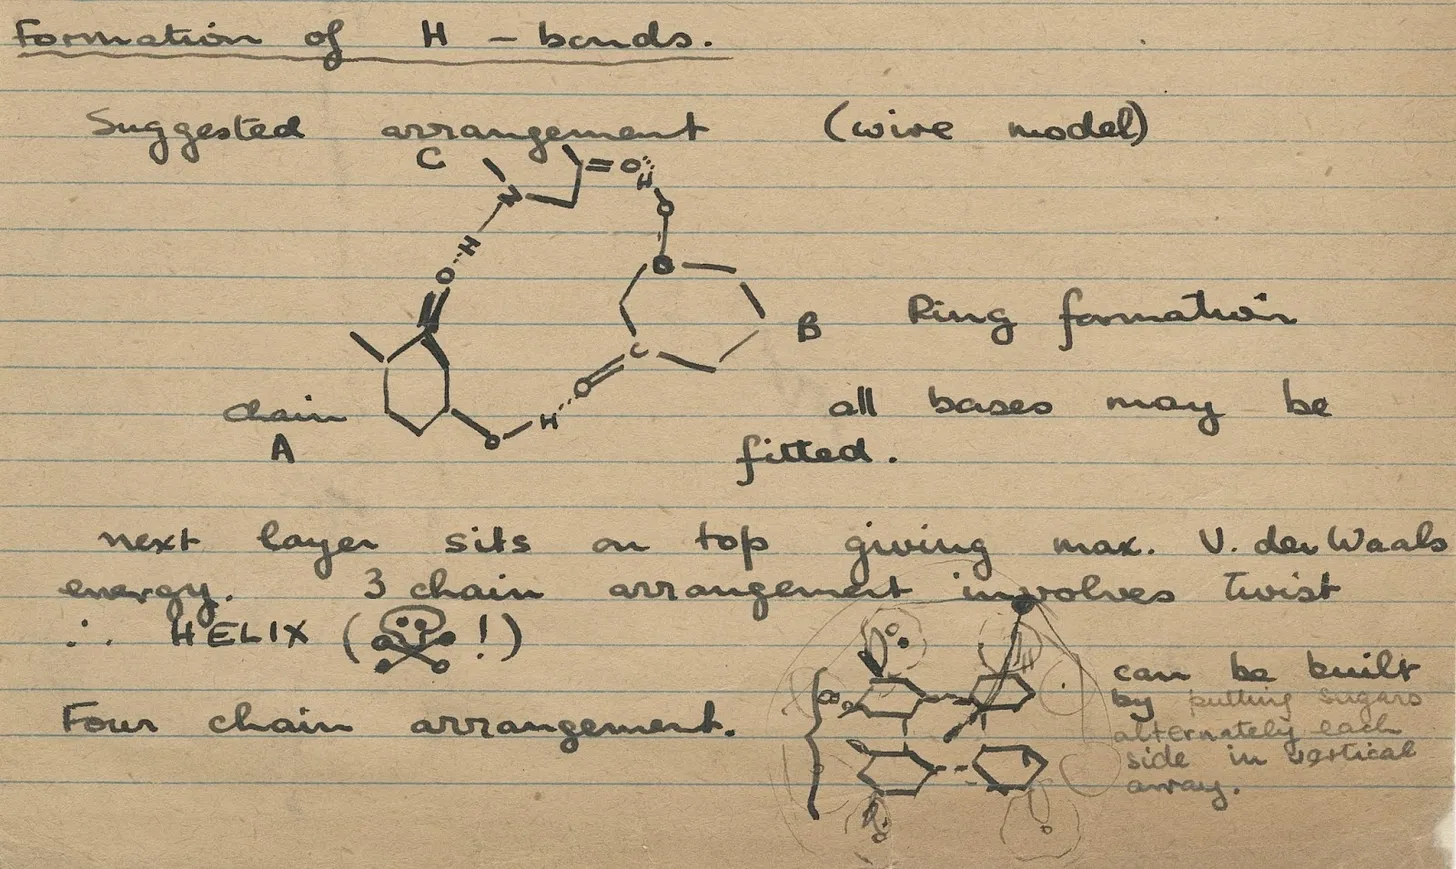 Formation of H - bonds.
Suggested arrangement (wire model)
C
N
= O
H
O
H
O
B
Ring formation
C
O
chain
A
H
O
all bases may be
fitted.
next layer sits on top giving max. V. der Waals
energy. 3 chain arrangement involves twist
∴ HELIX ( ! )
can be built
Four chain arrangement.
by putting sugars
alternately each
side in vertical
array.